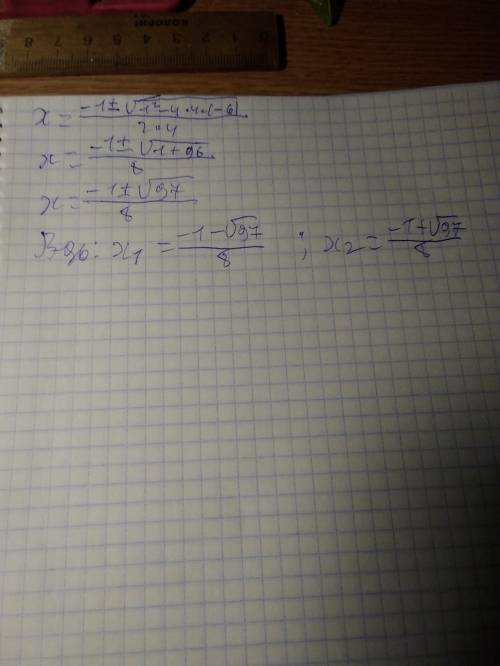 8 7 6 5 4 3 2
x = (-1 ± √(1² - 4·4·(-6))) / (2·4)
x = (-1 ± √(1+96)) / 8
x = (-1 ± √97) / 8
Відь: x₁ = (-1 - √97) / 8 ; x₂ = (-1 + √97) / 8